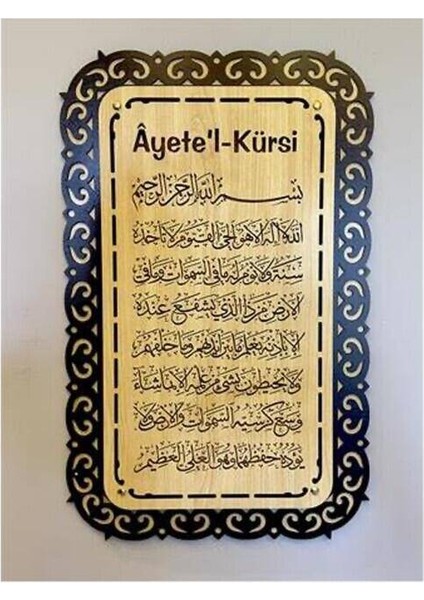 Âyete'l-Kürsi
بسم الله الرحمن الرحيم
الله لا اله الا هو الحي القيوم لا تأخذه
سنة ولا نوم له ما في السموات وما في
الارض من ذا الذي يشفع عنده
الا باذنه يعلم ما بين ايديهم وما خلفهم
ولا يحيطون بشيء من علمه الا بما شاء
وسع كرسيه السموات والارض ولا
يؤده حفظهما وهو العلي العظيم